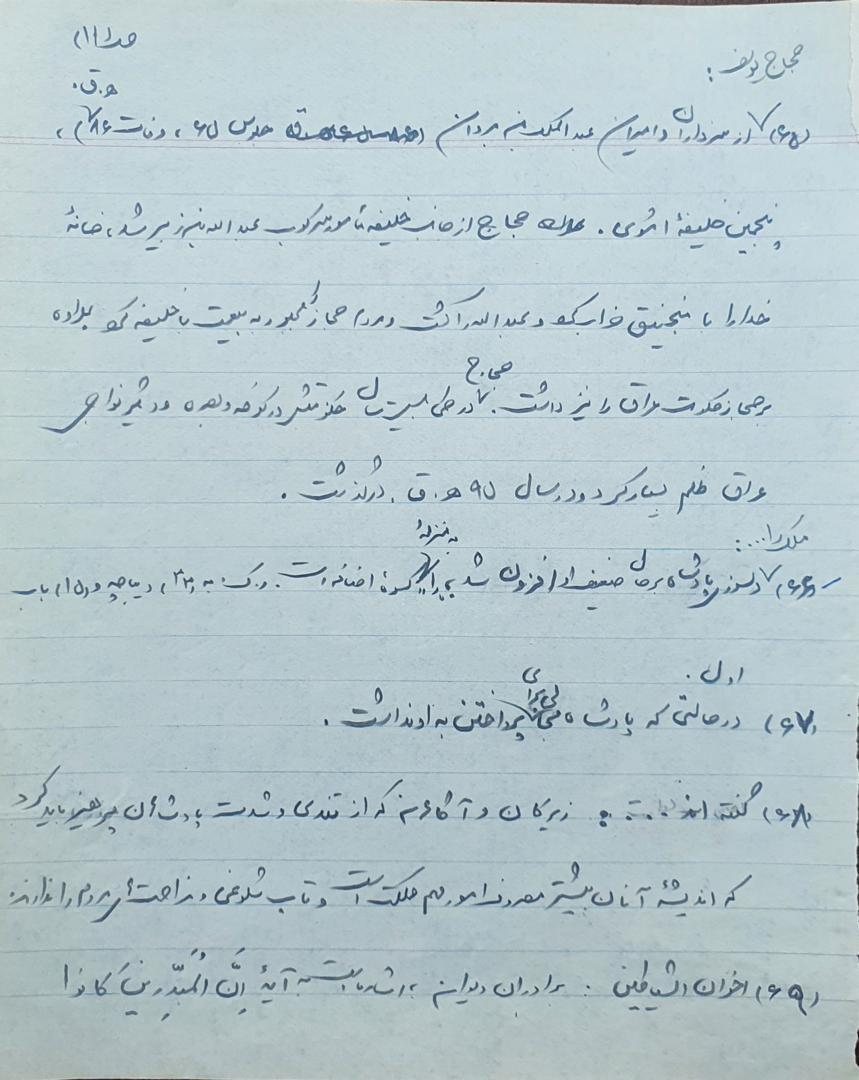 حجاج یوسف:
ه.ق.
(۶۵) از سرداران و امیران عبدالملک بن مروان (جلوس ۶۵، وفات ۸۶)،
پنجمین خلیفهٔ اموی. حجاج از جانب خلیفه مأمور سرکوب عبدالله بن زبیر شد، خانهٔ
خدا را با منجنیق خراب کرد و عبدالله را کشت و مردم حجاز مجبور به بیعت با خلیفه کرد
حکومت عراق را نیز داشت. حجاج در طی بیست سال حکومتش در کوفه و بصره و دیگر نواحی
عراق ظلم بسیار کرد و در سال ۹۵ ه.ق. درگذشت.
ملک را...:
(۶۶) دلسوزی پادشاه بر حال ضعیف او افزون شد به منزلهٔ کسرهٔ اضافه است. رک: به (۳۳) دیباچه و (۱۵) باب
اول.
(۶۷) در حالتی که پادشاه مجالی برای پرداختن به او نداشت.
(۶۸) گفته اند ... : زیرکان و آگاهان که از تندی و شدت پادشاهان پرهیز باید کرد
که اندیشهٔ آنان بیشتر مصروف امور مهم مملکت است و تاب شلوغی و مزاحمت‌های مردم را ندارند.
(۶۹) اخوان الشیاطین: برادران دیوان، اشاره است به آیهٔ اِنَّ الْمُبَذِّرِینَ کانوا